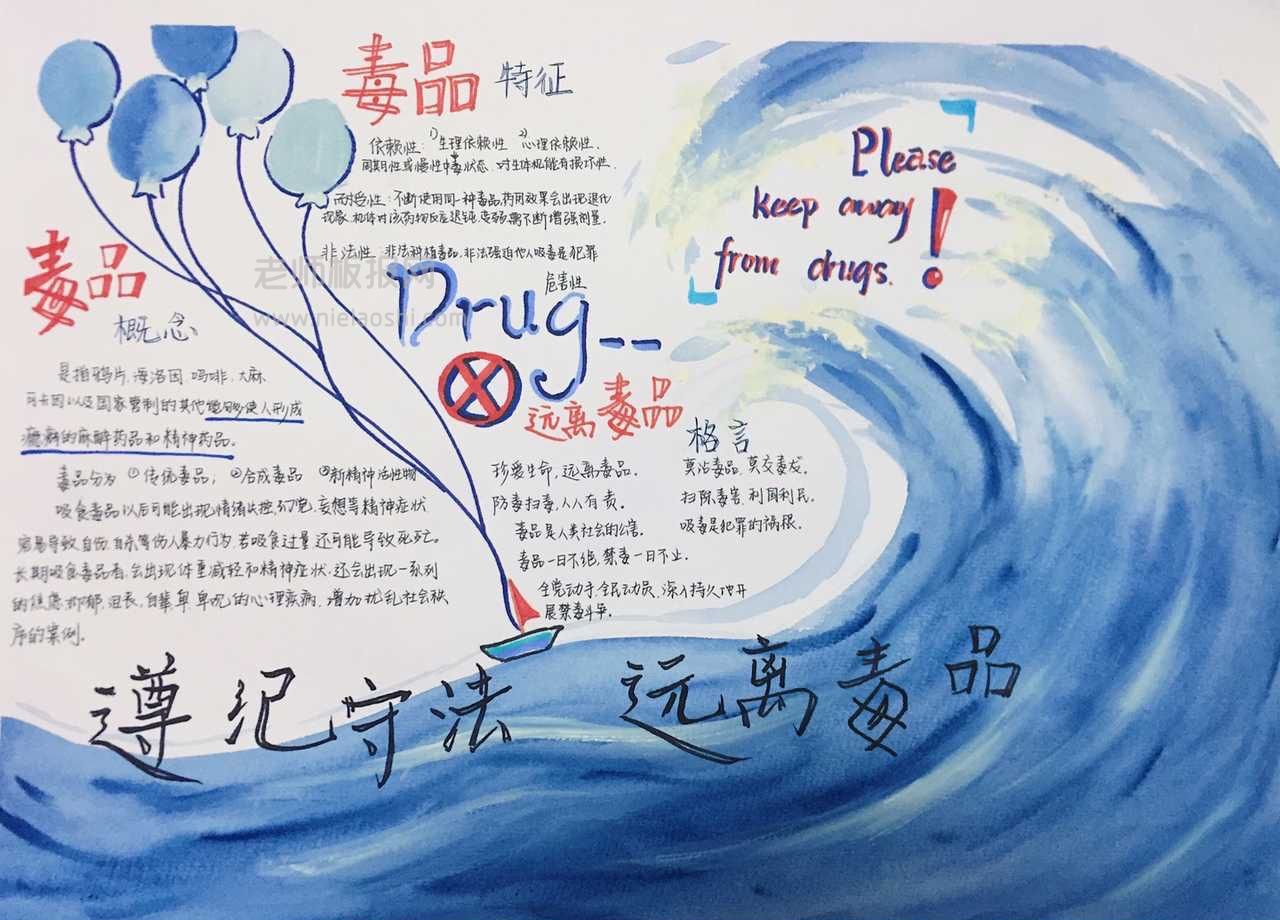 毒品 特征
依赖性：1)生理依赖性 2)心理依赖性，
周期性或慢性中毒状态，对生体机能有损坏性．
耐受性：不断使用同一种毒品药用效果会出现退化
现象，机体对该药物反应迟钝变弱需不断增强剂量．
非法性 非法种植毒品，非法强迫他人吸毒是犯罪
危害性
老师板报网
www.nielaoshi.com
Please
keep away
from drugs.
!
毒品
概念
是指鸦片、海洛因、吗啡、大麻、
可卡因以及国家管制的其他能够使人形成
瘾癖的麻醉药品和精神药品。
毒品分为 ①传统毒品；②合成毒品 ③新精神活性物
吸食毒品以后可能出现情绪失控、幻觉、妄想等精神症状
容易导致自伤、自杀等伤人暴力行为，若吸食过量还可能导致死亡。
长期吸食毒品者，会出现体重减轻和精神症状，还会出现一系列
的焦虑、抑郁、沮丧、自卑的心理疾病，增加扰乱社会秩
序的案例。
Drug--
远离毒品
珍爱生命，远离毒品．
防毒扫毒，人人有责．
毒品是人类社会的公害．
毒品一日不绝，禁毒一日不止．
全党动手，全民动员，深入持久地开
展禁毒斗争．
格言
莫沾毒品，莫交毒友．
扫除毒害，利国利民．
吸毒是犯罪的祸根．
遵纪守法 远离毒品